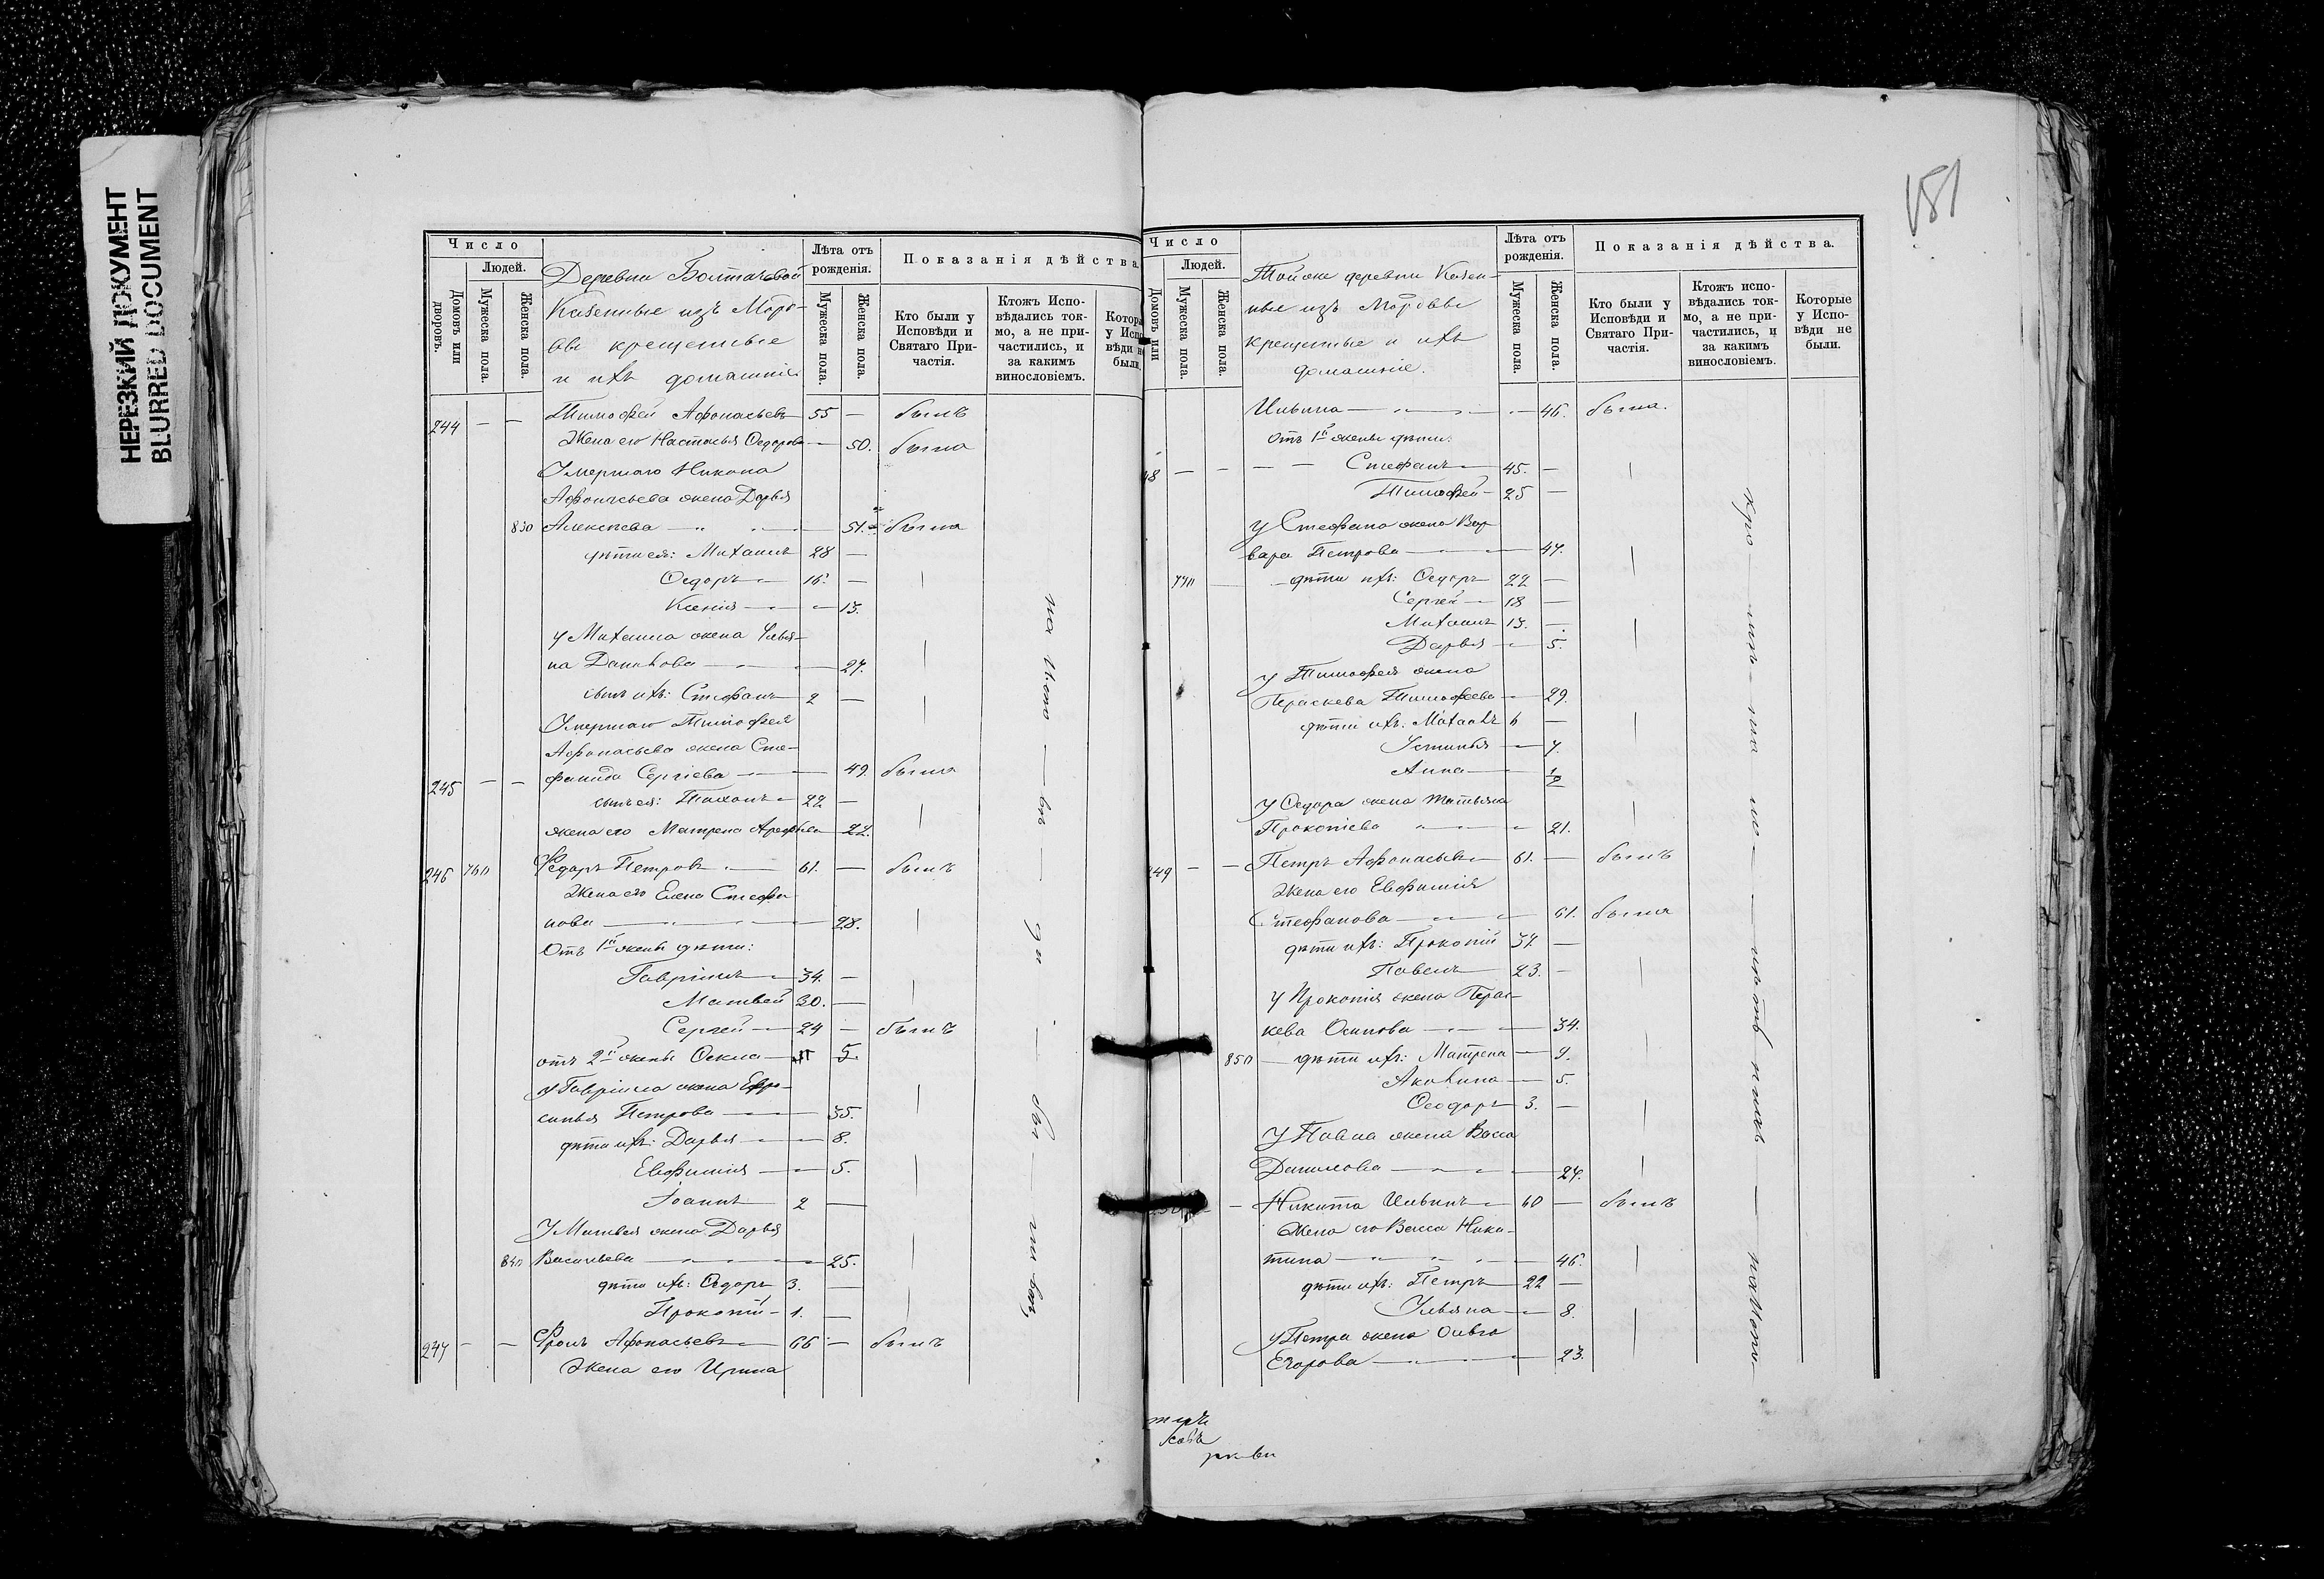 НЕРЕЗКИЙ ДОКУМЕНТ
BLURRED DOCUMENT
181
Число
Людей.
Домовъ или дворовъ.
Мужеска пола.
Женска пола.
Деревни
Казенные изъ Морд-
вы крещеные
и ихъ домашніе
Лѣта отъ рожденія.
Мужеска пола.
Женска пола.
Показанія дѣйства.
Кто были у Исповѣди и Святаго При-частія.
Ктожъ Испо-вѣдались ток-мо, а не при-частились, и за какимъ винословіемъ.
244 Тимофей Афонасьевъ 55 — былъ
Жена его Настасья Ѳедорова — 50. была
Умершаго Никона
Афонасьева жена Дарья
830 Алексѣева — 51. была
дѣти ея: Михаилъ 28 —
Ѳедоръ 16. —
Ксенія — 13.
У Михаила жена Улья-
на Данилова — 27.
сынъ ихъ: Стефанъ 2 —
Умершаго Тимофея
Афонасьева жена Сте-
245 фанида Сергіева — 49. была
сынъ ея: 22 —
жена его Матрена Арефьева — 22.
246 760 Ѳедоръ Петровъ 61. — былъ
Жена его Елена Стефа
нова — 28.
Отъ 1й жены дѣти:
Гавріилъ 34. —
Матвей 30. —
Сергей 24 — былъ
отъ 2й жены Ѳекла — 5.
У Гавріила жена Ефро-
синья Петрова — 35.
дѣти ихъ: Дарья — 8.
Евфимія — 5.
Іоаннъ 2 —
У Матвея жена Дарья
840 Васильева — 25.
дѣти ихъ: Ѳедоръ 3. —
Прокопій 1. —
247 Фролъ Афонасьевъ 66 — былъ
Жена его Ирина
Число
Людей.
Домовъ или
Мужеска пола.
Женска пола.
Тойже деревни Казен-
ные изъ Мордвы
крещеные и ихъ
домашніе.
Лѣта отъ рожденія.
Мужеска пола.
Женска пола.
Показанія дѣйства.
Кто были у Исповѣди и Святаго При-частія.
Ктожъ испо-вѣдались ток-мо, а не при-частились, и за какимъ винословіемъ.
Которые у Испо-вѣди не были.
Ильина — 46. была.
Отъ 1й жены дѣти:
48 Стефанъ 45. —
Тимофей 25 —
У Стефана жена Вар
вара Петрова — 47.
770 дѣти ихъ: Ѳедоръ 22 —
Сергей 18 —
Михаилъ 13. —
Дарья — 5.
У Тимофея жена
Параскева Тимофеева — 29.
дѣти ихъ: Михаилъ 6 —
Устинья — 4.
Анна — 1/2
У Ѳедора жена Татьяна
Прокопіева — 21.
249 Петръ Афонасьевъ 61. — былъ
Жена его Евфимія
Стефанова — 61. была
дѣти ихъ: Прокопій 37. —
Павелъ 23. —
У Прокопія жена Парас-
кева Осипова — 34.
850 дѣти ихъ: Матрена — 9.
Акилина — 5.
Ѳеодоръ 3. —
У Павла жена Васса
Данилова — 24.
Никита Ильинъ 60 — былъ
Жена его Васса Ники-
тина — 46.
дѣти ихъ: Петръ 22 —
Ульяна — 8.
У Петра жена Ольга
Егорова — 23.